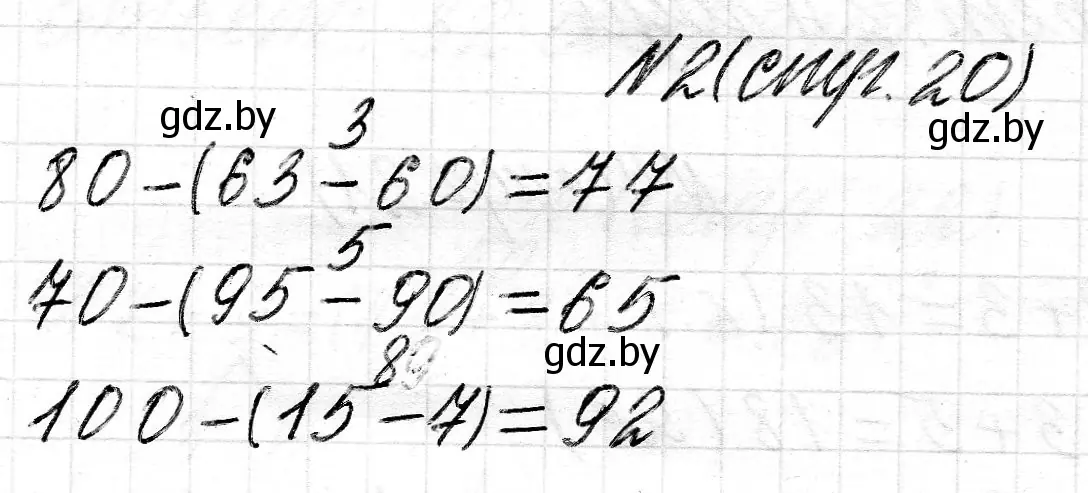 N2(стр. 20)
gdz.by
gdz.by
3
80-(63-60)=77
5
70-(95-90)=65
gdz.by
8
100-(15-7)=92